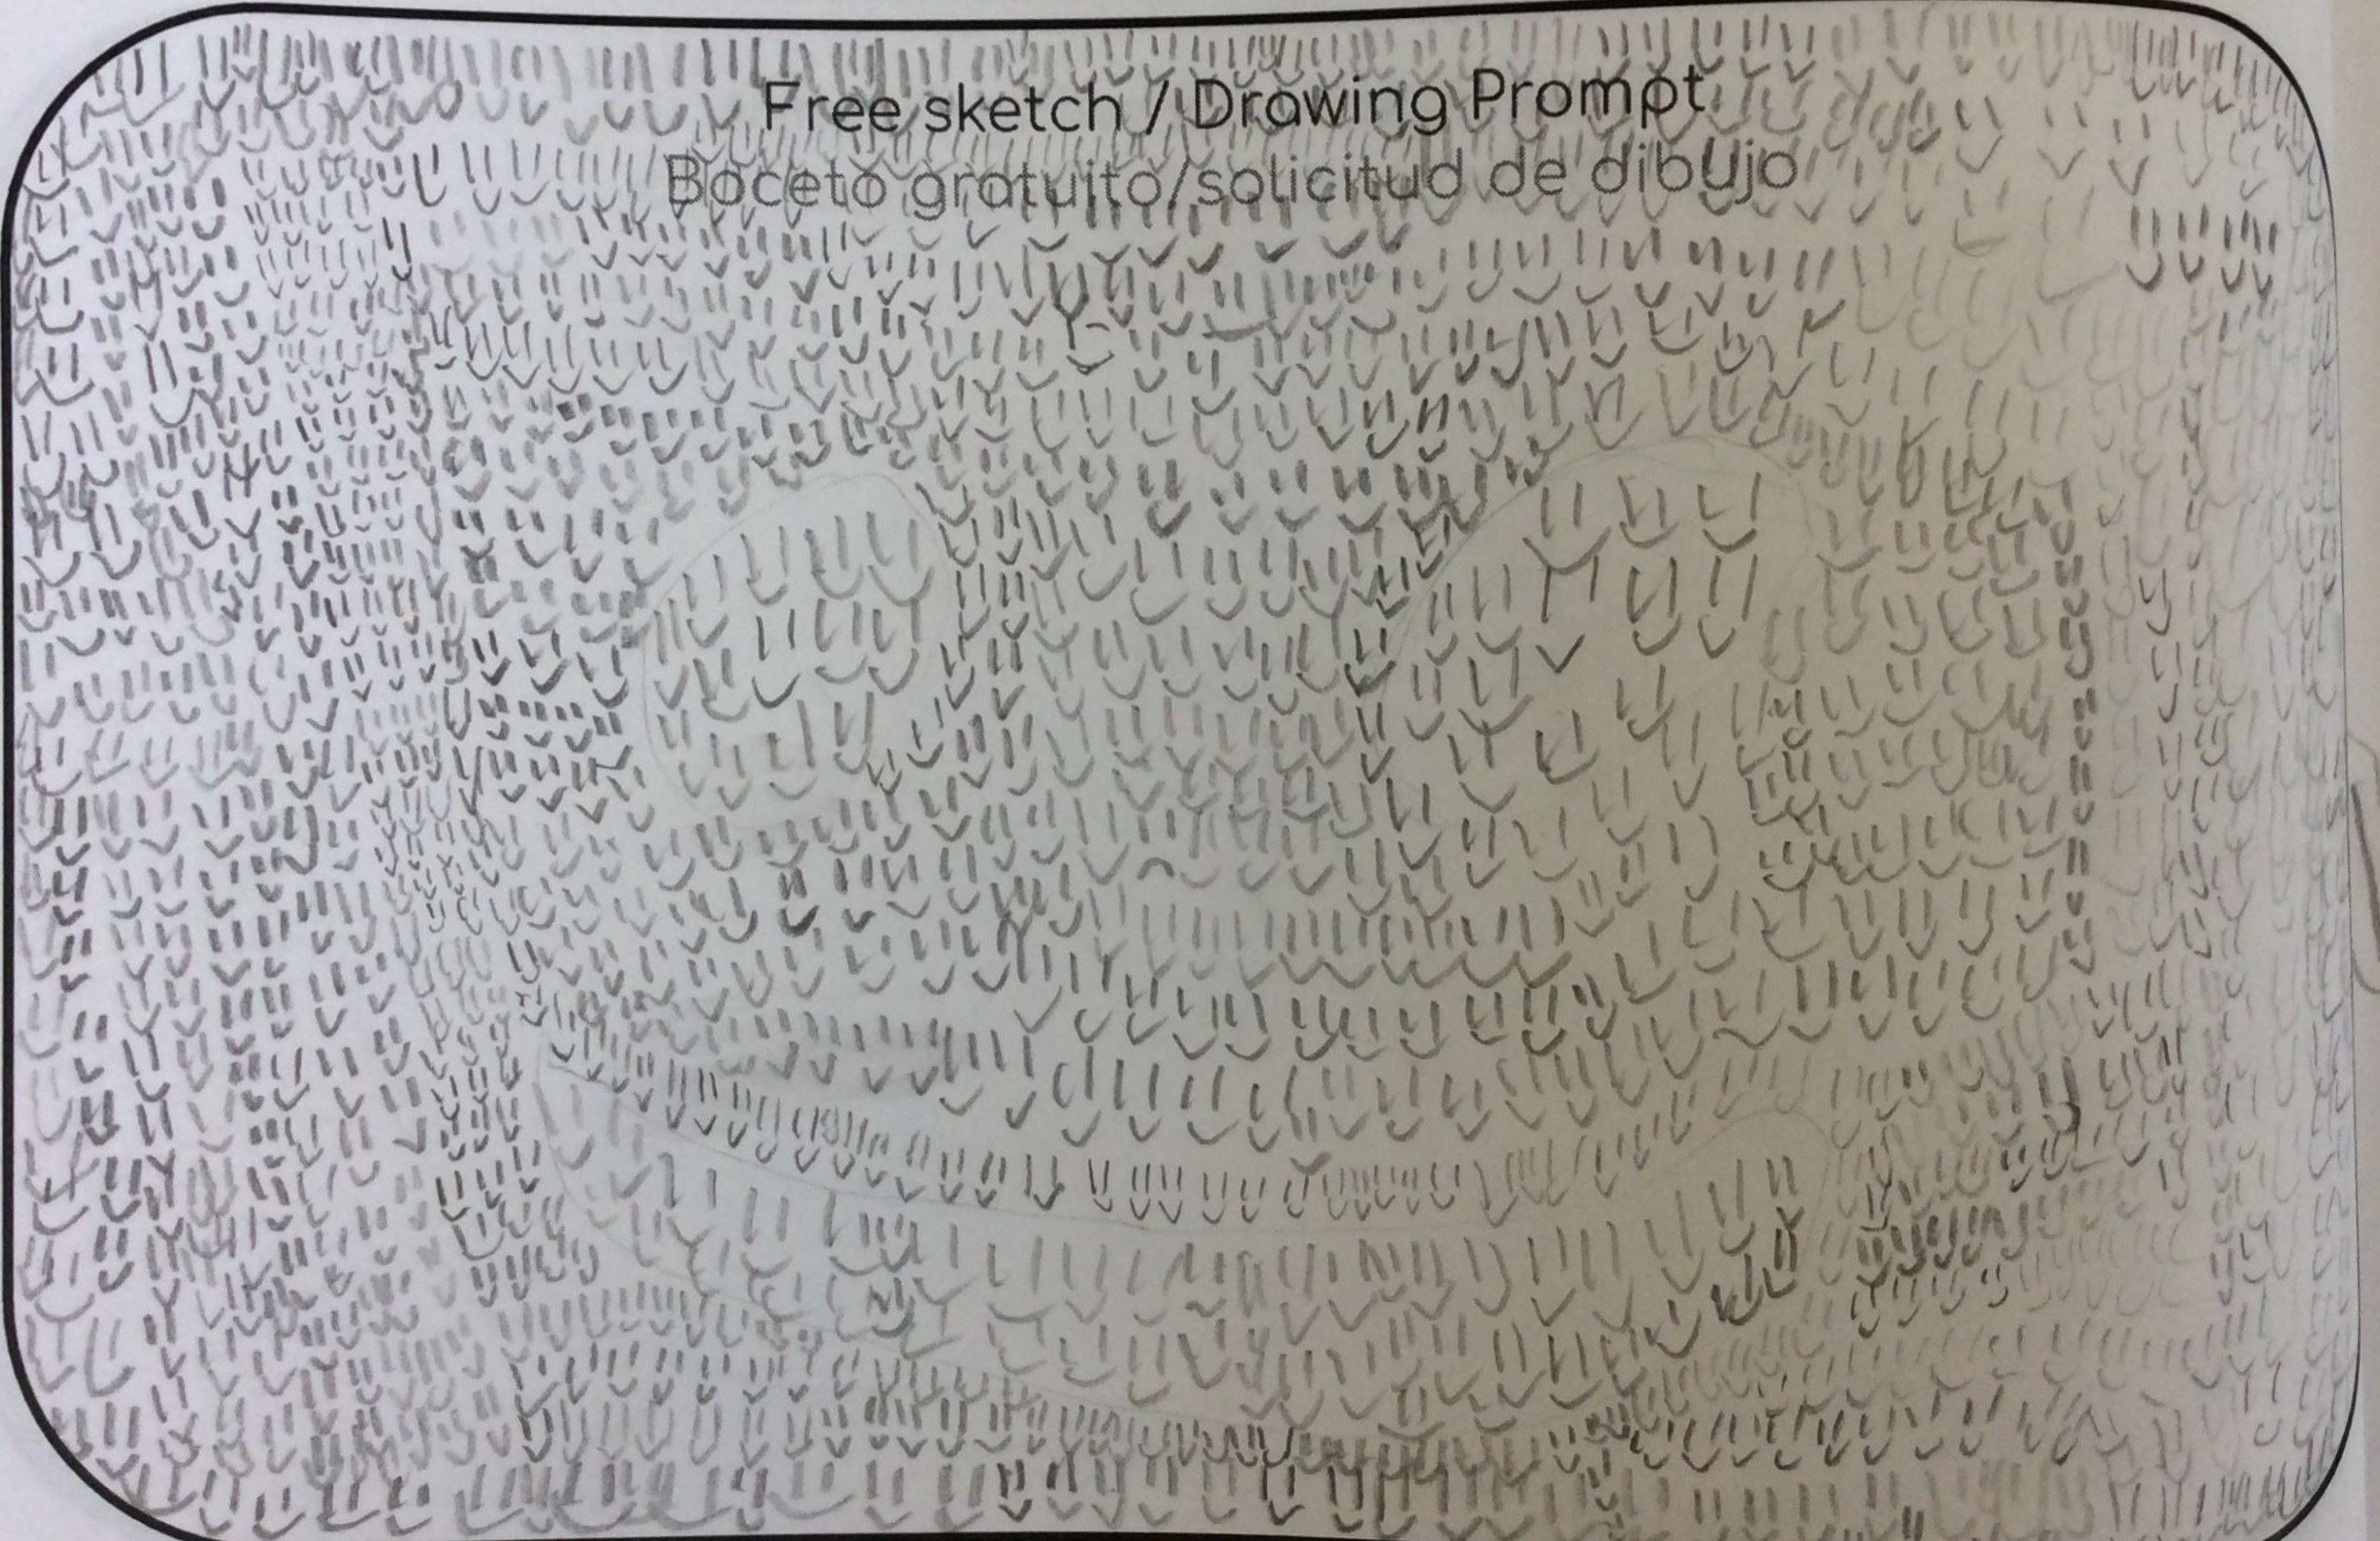 Free sketch / Drawing Prompt
Boceto gratuito/solicitud de dibujo